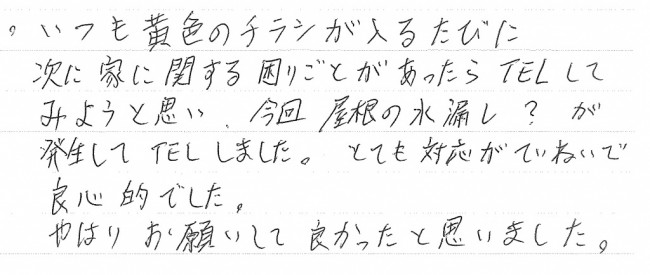 。いつも黄色のチラシが入るたびに
次に家に関する困りごとがあったらTELして
みようと思い、今回屋根の水漏レ?が
発生してTELしました。とても対応がていねいで
良心的でした。
やはりお願いして良かったと思いました。